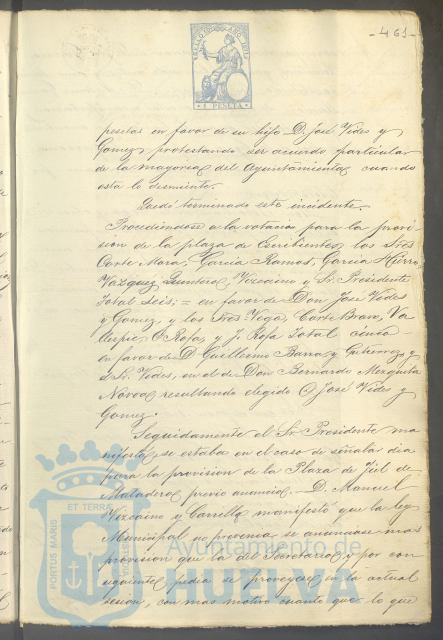 - 461 -
1 PESETA
pesetas en favor de su hijo D. José Vides y
Gomez, protestando ser acuerdo particular
de la mayoria del Ayuntamiento, cuando
esta lo desmiente.
Quedó terminado este incidente.
Procediendose a la votacion para la provi
sion de la plaza de Escribientes, los Sres
Corte Mora, Garcia Ramos, Garcia
Vazquez Quintero, Vizcaino y Sr. Presidente
total seis; = en favor de Don José Vides
y Gomez y los Sres Vega, Corte Bravo, Va
llespin, O. Rofa, y J. Rofa total cinco
en favor de D. Guillermo Barra y Gutierrez y
Sr. Vides, en el de Don Bernardo Mezquita
Novoa, resultando elegido D. José Vides y
Gomez.
Seguidamente el Sr. Presidente ma
nifestó, se estaba en el caso de señalar dia
para la provision de la Plaza de Fiel de
Matadero, previo anuncio. D. Manuel
Vizcaino y Carrello, manifestó que la ley
Municipal no prevenia se anunciase mas
provision que la del Secretario, y por con
siguiente pedia se proveyese en la actual
sesion, con mas motivo cuanto que lo que
PORTUS MARIS ET TERRA
Ayuntamiento de
HUELVA